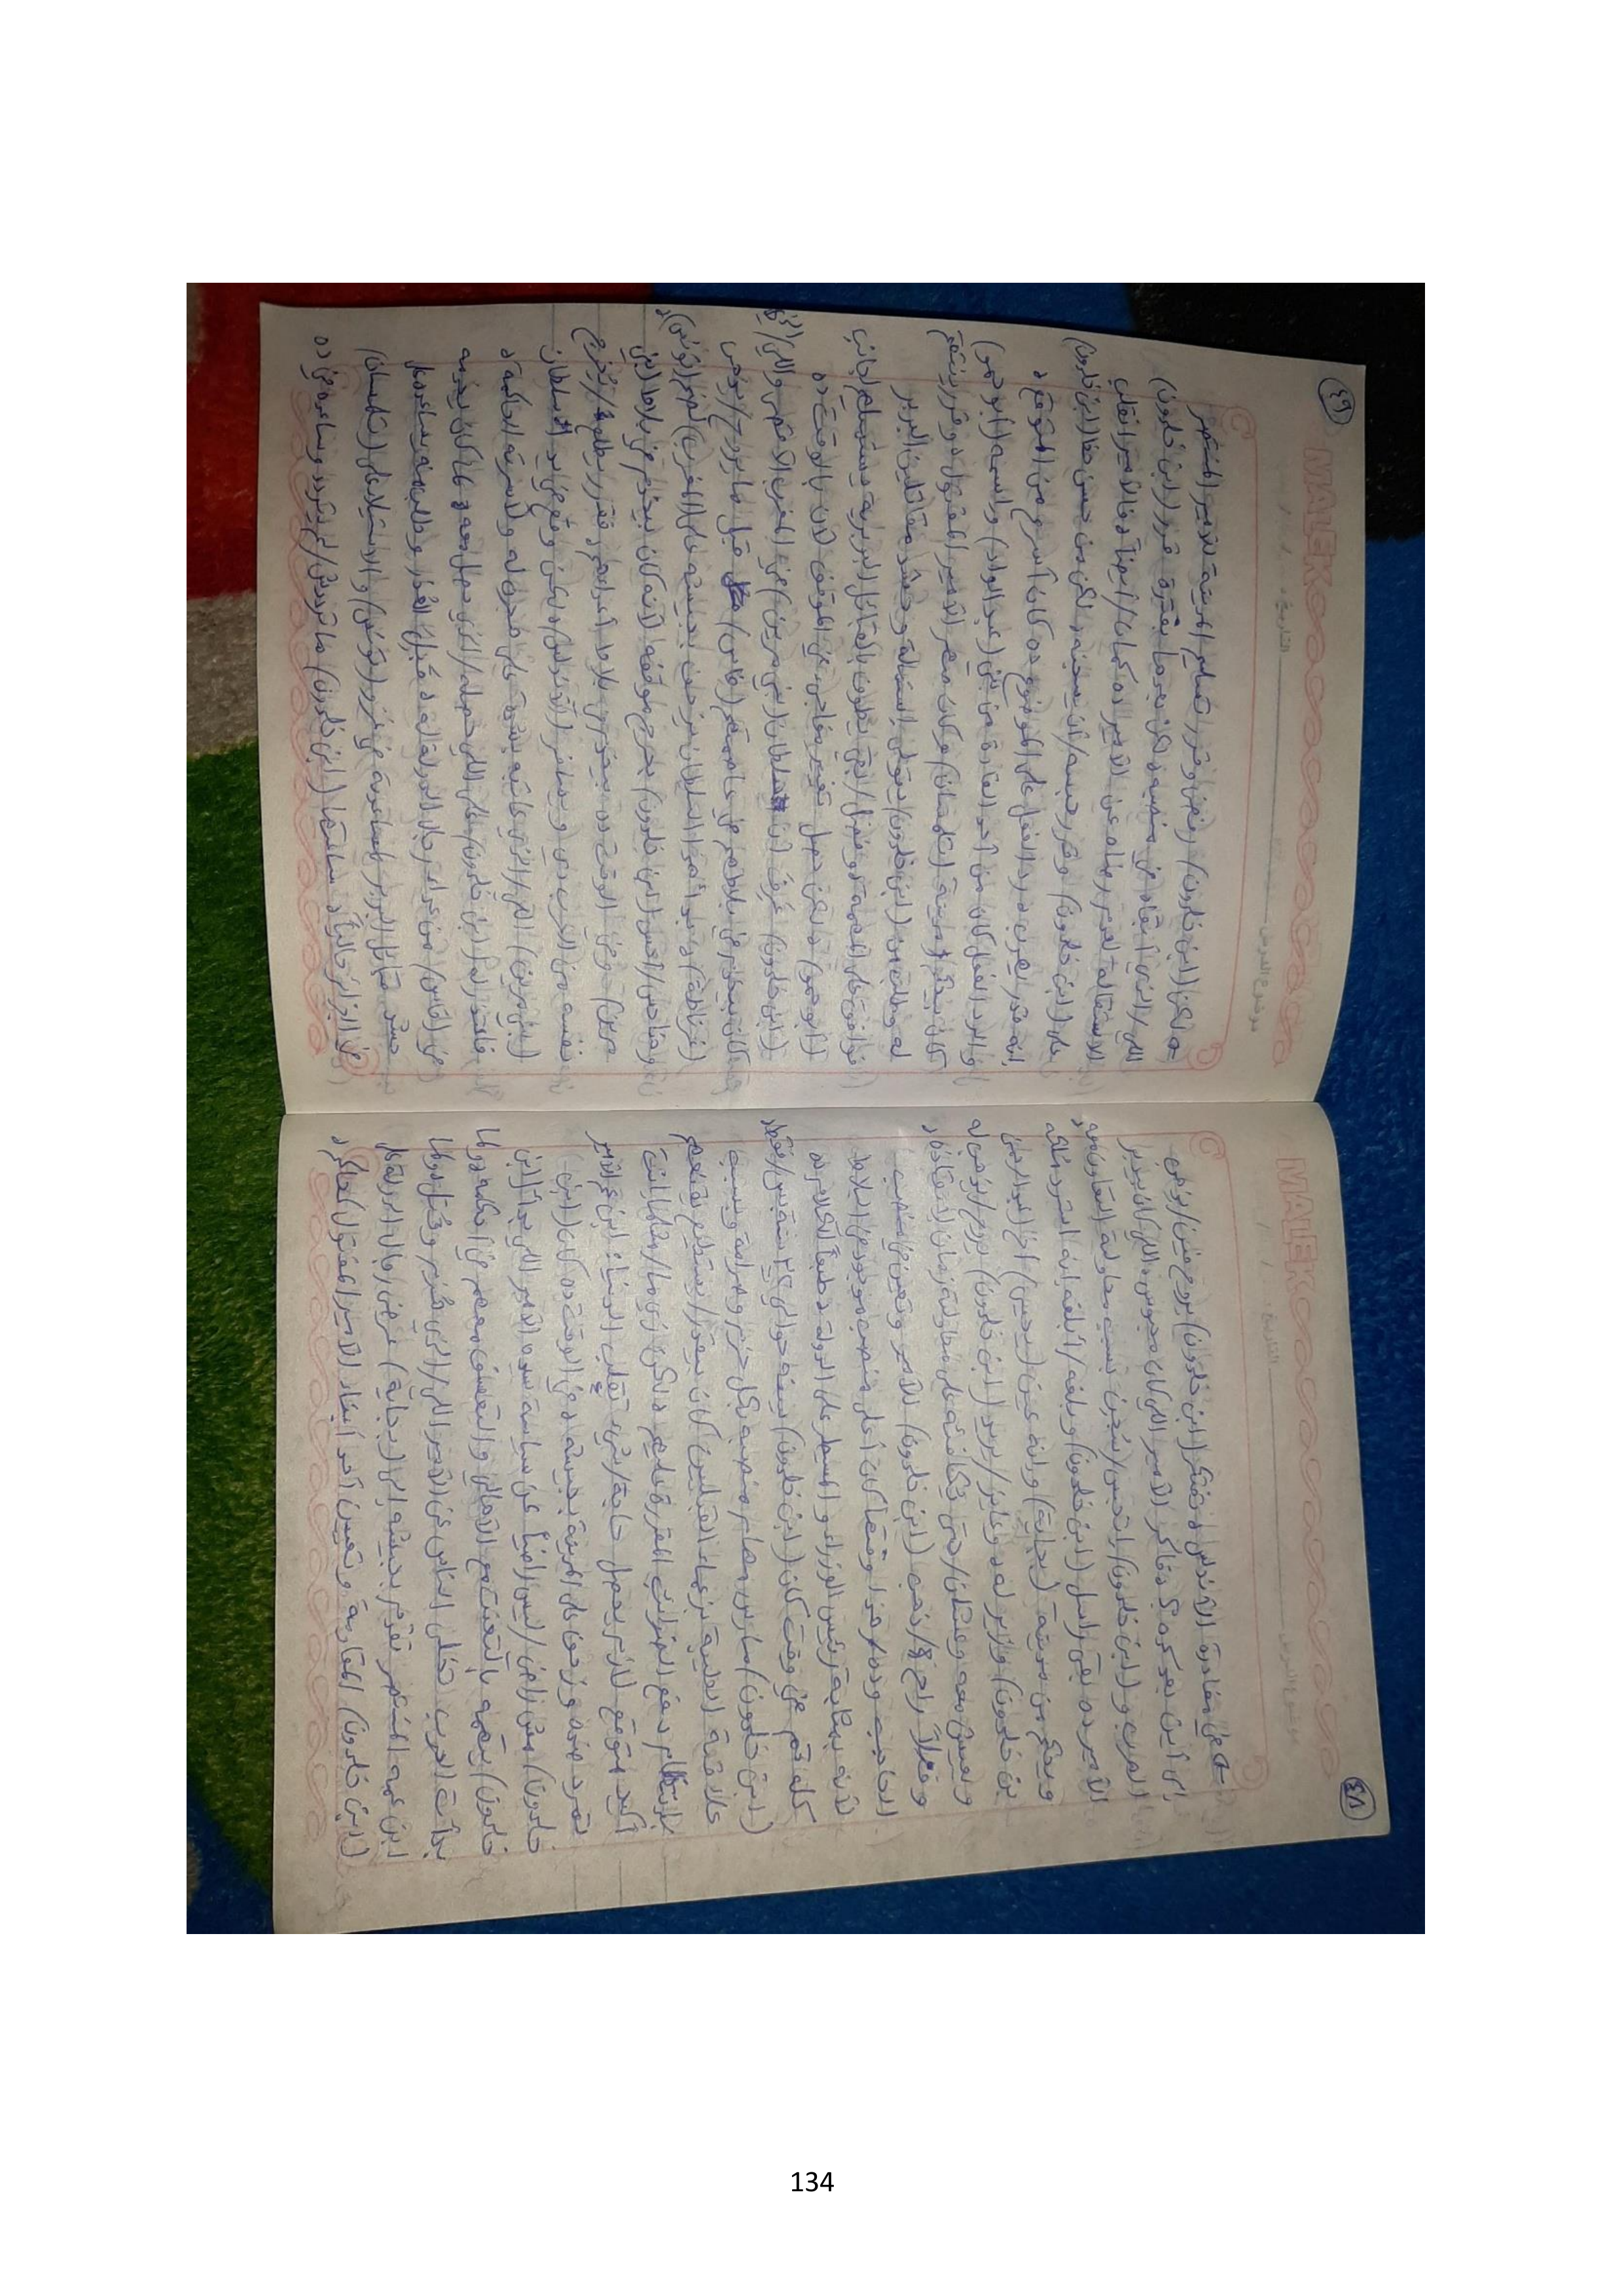 MALEK
موضوع الدرس
التاريخ : / /
٤٨
في مغادرة الأندلس، فتفكر (ابن خلدون) يروح فين/يذهب
إلى أين بعد كده؟، فاكر الأمير اللي كان محبوس، اللي كان بيدير
الهرب و(ابن خلدون) اتحبس/سُجِن بسبب محاولة التعاون معه،
الأمير ده بقى راسل (ابن خلدون) وبلغه/أبلغه إنه استرد ملكه
وبيحكم من مدينة (بجاية) وإنه عين (يحيى) أخو (عبد الرحمن
بن خلدون) وزير له، وعايز/يريد (ابن خلدون) يروح/يذهب له
ويعيش معه وعشان/حتى يكافئه على محاولة زمان لإنقاذه،
وفعلاً راح/ذهب (ابن خلدون) للأمير وتعين في منصب
الحاجب وده/هذا وقتها كان أعلى منصب موجود في البلاط
لأنه بمثابة رئيس الوزراء والمسيطر على الدولة، طبعاً الكلام ده
كله تم في وقت كان (ابن خلدون) سنه حوالي ٣٤ سنة بس/فقط،
(ابن خلدون) مارس مهام منصبه بكل حزم وصرامة وبسبب
علاقته الطيبة بزعماء القبايل كان بيقدر/يستطيع يقنعهم
بانتظام دفع الضرايب المقررة عليهم، ولكن زي ما/مثلما إنت
أكيد متوقع لازم يحصل حاجة/شيء تقلب الدنيا؛ ابن عم الأمير
تمرد ضده وزحف على المدينة بجيشه، في الوقت ده كان (ابن
خلدون) مش راضي/ليس راضياً عن سياسة سيده الأمير اللي بدأ (ابن
خلدون) يتهمه بالتعنت مع الأهالي والتعسف معهم في أحكامه ولما
بدأت الحرب تخلى الناس عن الأمير اللي/الذي هُزم وقُتِل ولما
ابن عمه المنتصر تقدم بجيشه إلى (بجاية) عرض رجال الدولة على
(ابن خلدون) المقاومة وتعيين أحد أبناء الأمير المقتول كحاكم،
MALEK
موضوع الدرس
التاريخ : / /
٤٩
لكن (ابن خلدون) رفض وقرر تسليم المدينة للأمير المنتصر
اللي/الذي أبقاه في منصبه، لكن بعدها بفترة قرر (ابن خلدون)
الاستقالة لعدم رضاه عن الأمير ده كمان/أيضاً، فالأمير انقلب
على (ابن خلدون) وقرر حبسه/أن يسجنه، لكن من حسن حظ (ابن خلدون)
إنه قدر يهرب، رد الفعل على الموضوع ده كان أسرع من المتوقع،
والرد الفعل كان من أحد القادة من بني (عبد الواد) واسمه (أبو حمو)
كان بيحكم مدينة (تلمسان) وكان صهر الأمير المقتول، وقرر ينتقم
له وطلب من (ابن خلدون) يتولى استمالة وحشد مقاتلين البربر
فوافق على المهمة دي وفضل/بقي يطوف بالقبايل البربرية يستميلهم لجانب
(أبو حمو)، لكن حصل تغيير مفاجئ في الموقف لأن بالوقت ده
(ابن خلدون) عرف أن سلطان (بني مرين) في المغرب الأقصى واللي/الذي
كان بيخدم في بلاطهم في عاصمتهم (فاس) قبل ما يروح/يذهب
(غرناطة)، بدأ هذا السلطان يزحف بجيشه على (المغرب) لضم (تونس)،
وهنا حس/أحس (ابن خلدون) بحرج موقفه لأنه كان بيخدم في بلاط (بني
مرين)، وفي الوقت ده بيخدم في بلاط أعداءهم، فقرر يطلع/يخرج
نفسه من الحرب دي ويسافر (الأندلس)، لكن وقع في يد سلطان
(بني مرين) اللي/الذي عاتبه بشدة على هجرانه ولأسرته الحاكمة،
فاعتذر له (ابن خلدون) على اللي حصل/الذي حصل معه لما كان بيخدمه
في (فاس) من عداء رجال الدولة له، فقبل العذر وطلب منه يساعده على
حشد قبائل البربر للمساعدة في غزو (تونس) والاستيلاء على (تلمسان)
في الجزائر حالياً، ساعتها (ابن خلدون) ما ترددش/لم يتردد وساعده في ده
134